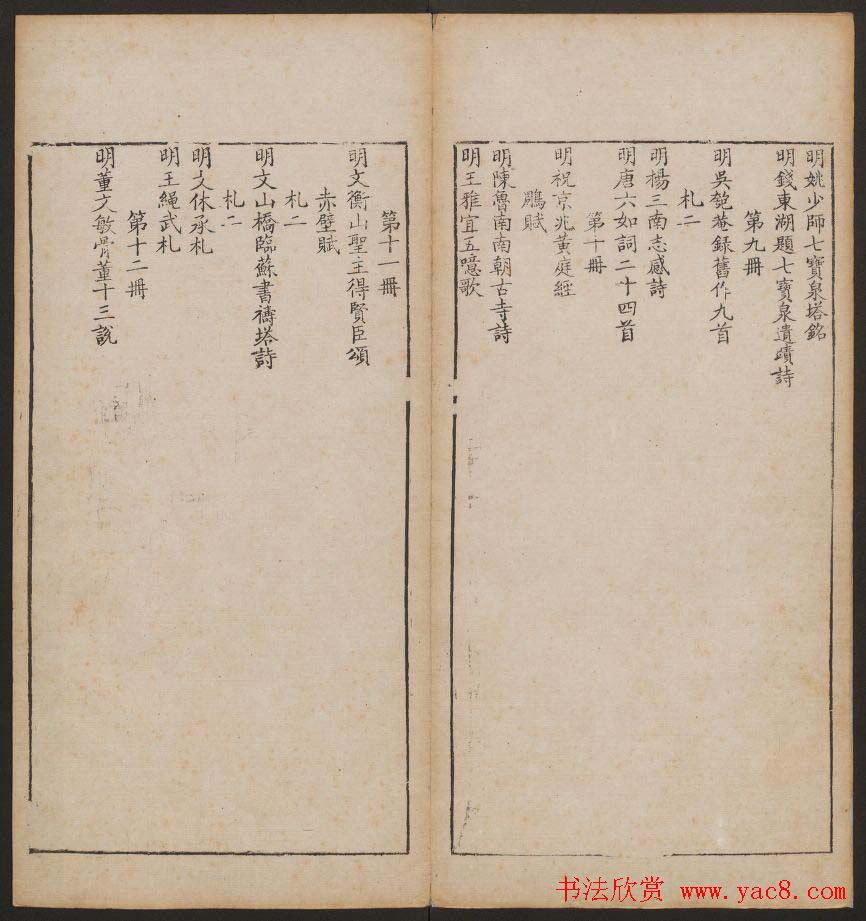 明姚少師七寶泉塔銘
明錢東湖題七寶泉遺蹟詩
第九冊
明吳匏菴録舊作九首
札二
明楊三南志感詩
明唐六如詞二十四首
第十冊
明祝京兆黃庭經
鵩賦
明陳魯南南朝古寺詩
明王雅宜五噫歌
第十一冊
明文衡山聖主得賢臣頌
赤壁賦
札二
明文山橋臨蘇書禱塔詩
札二
明文休承札
明王繩武札
第十二冊
明董文敏骨董十三說
书法欣赏 www.yac8.com